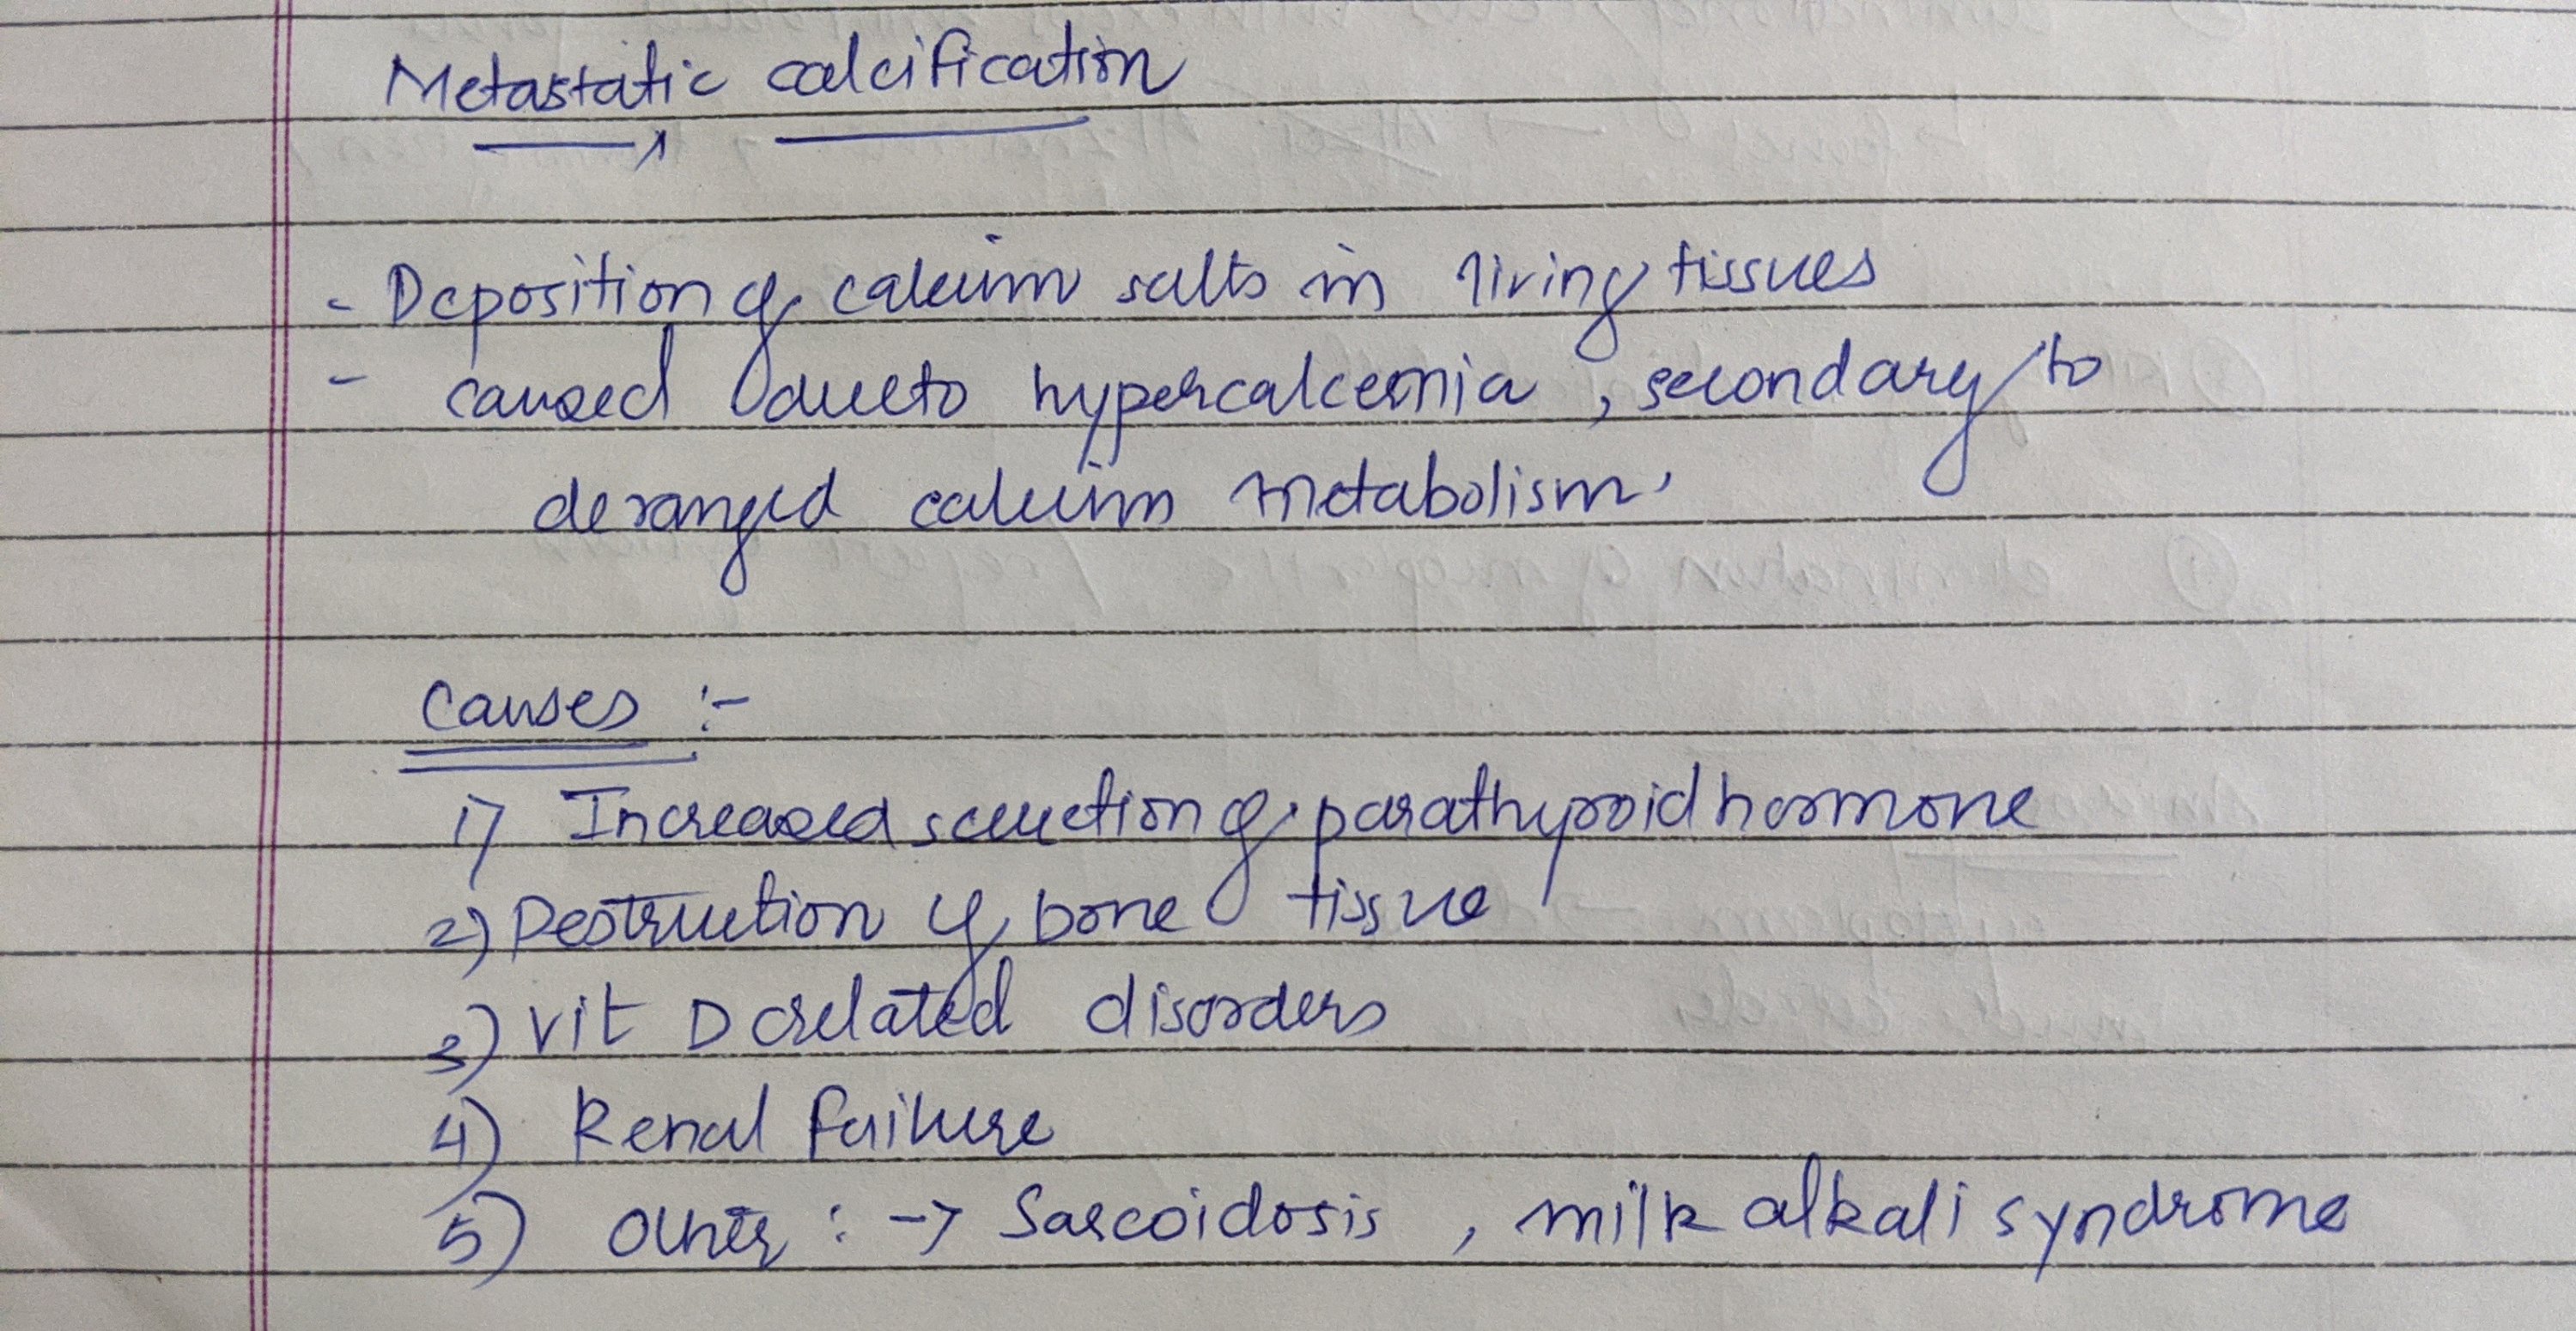 Metastatic calcification
- Deposition of calcium salts in living tissues
- caused due to hypercalcemia, secondary to
deranged calcium metabolism.
Causes :-
1) Increased secretion of parathyroid hormone
2) Destruction of bone tissue
3) Vit D related disorders
4) Renal failure
5) Other : → Sarcoidosis, milk alkali syndrome